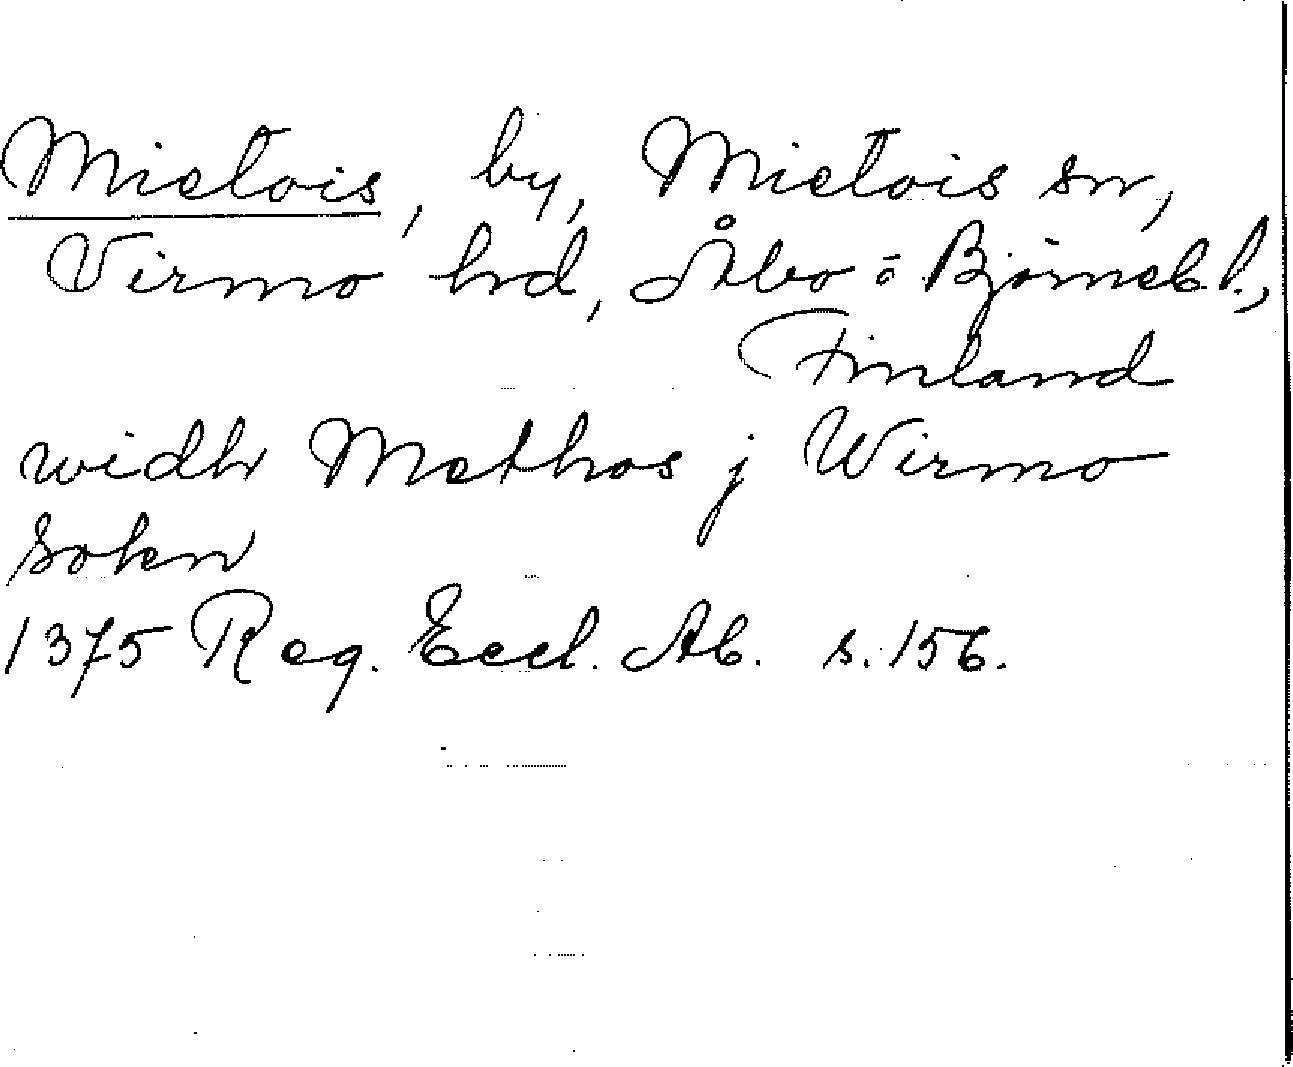 Mietois, by, Mietois sn,
Virmo hd, Åbo o Björneb l.,
Finland
widh Methos j Wirmo
sokn
1375 Reg. Eccl. Ab. s. 156.